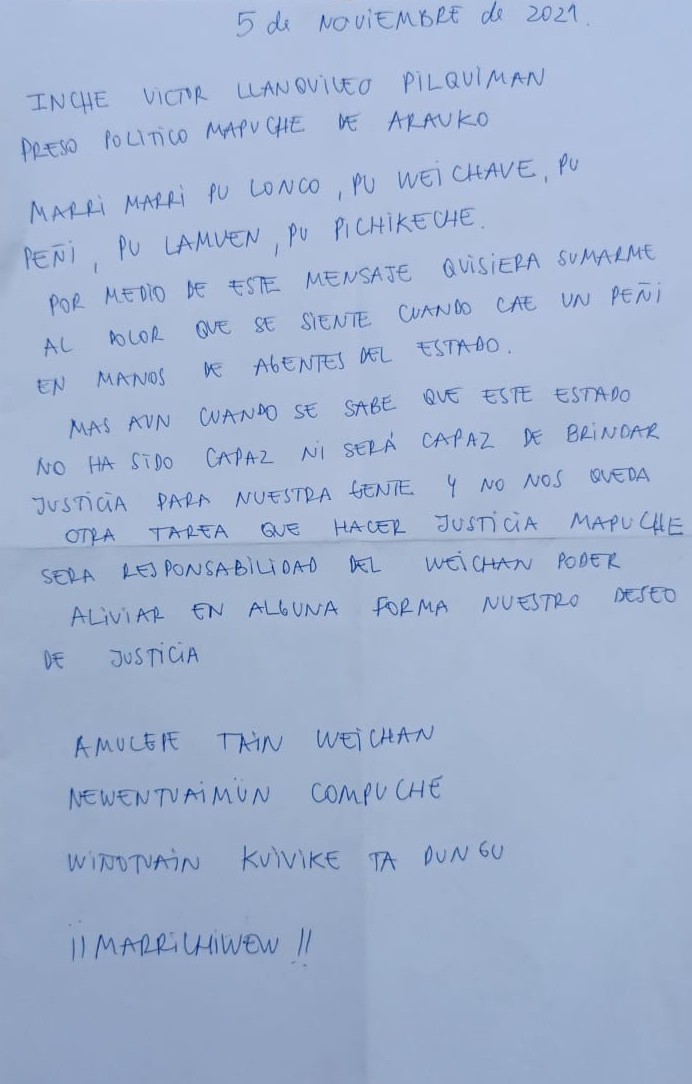 5 de NOVIEMBRE de 2021.
INCHE VICTOR LLANQUILEO PILQUIMAN
PRESO POLITICO MAPUCHE DE ARAUKO
MARRI MARRI PU LONCO, PU WEICHAVE, PU
PEÑI, PU LAMUEN, PU PICHIKECHE.
POR MEDIO DE ESTE MENSAJE QUISIERA SUMARME
AL DOLOR QUE SE SIENTE CUANDO CAE UN PEÑI
EN MANOS DE AGENTES DEL ESTADO.
MAS AUN CUANDO SE SABE QUE ESTE ESTADO
NO HA SIDO CAPAZ NI SERÁ CAPAZ DE BRINDAR
JUSTICIA PARA NUESTRA GENTE Y NO NOS QUEDA
OTRA TAREA QUE HACER JUSTICIA MAPUCHE
SERA RESPONSABILIDAD DEL WEICHAN PODER
ALIVIAR EN ALGUNA FORMA NUESTRO DESEO
DE JUSTICIA
AMULEPE TAIN WEICHAN
NEWENTUAIMÜN COMPUCHE
WIÑOTUAIN KUIVIKE TA DUNGU
¡¡MARRICHIWEW!!